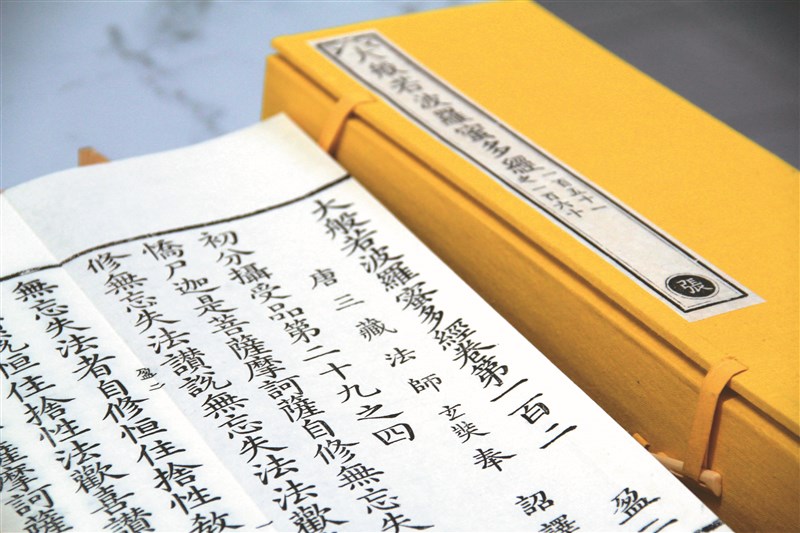 大般若波羅蜜多經
一百五十一
之一百六十
張
大般若波羅蜜多經卷第一百二 盈二
唐三藏法師玄奘奉 詔譯
初分攝受品第二十九之四
憍尸迦是菩薩摩訶薩自修無忘失
修無忘失法讚說無忘失法法歡
盈二
無忘失法者自修恒住捨性教
說恒住捨性法歡喜讚
薩摩訶薩